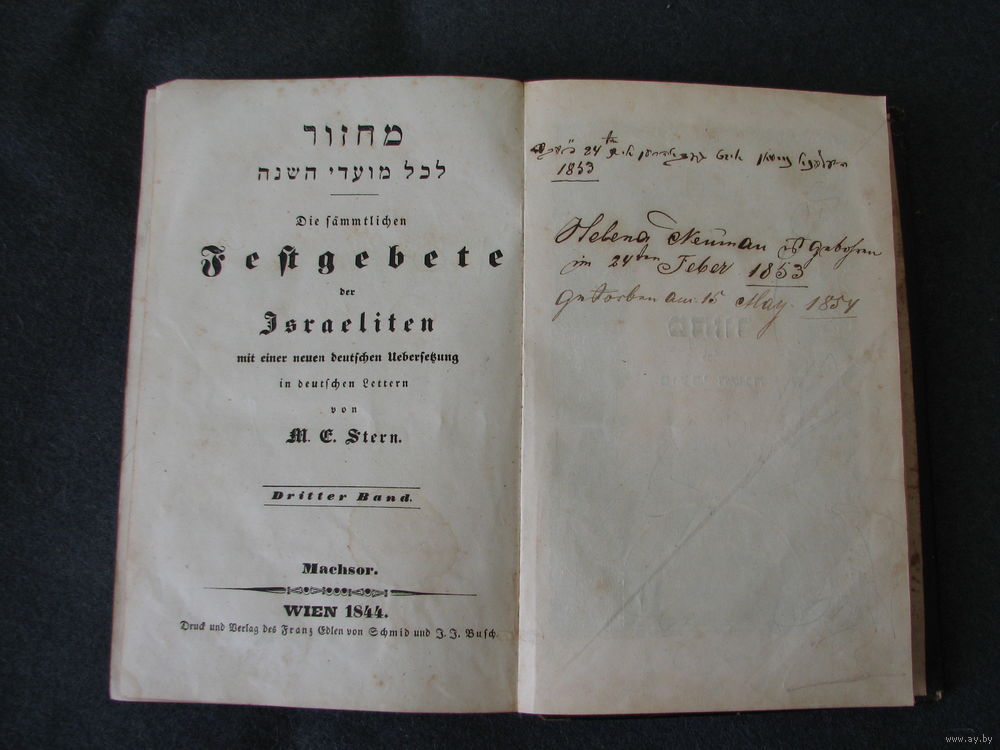 מחזור
לכל מועדי השנה
Die sämmtlichen
Festgebete
der
Israeliten
mit einer neuen deutschen Uebersetzung
in deutschen Lettern
von
M. E. Stern.
Dritter Band.
Machsor.
WIEN 1844.
Druck und Verlag des Franz Edlen von Schmid und J. J. Busch.
24
1853
Helena Neuman ist gebohren
im 24ten Feber 1853
Gestorben am 15 May 1854
www.ay.by